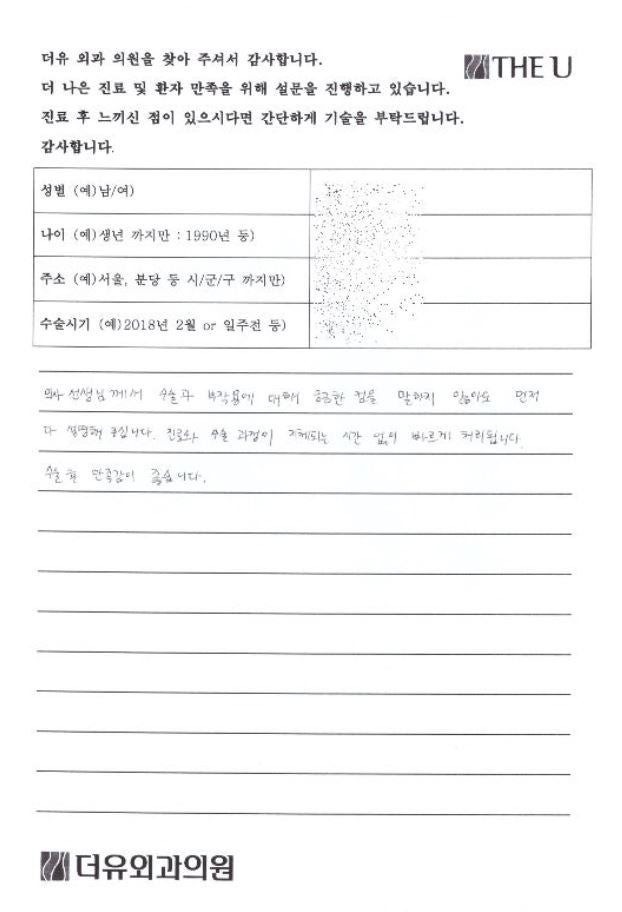 더유 외과 의원을 찾아 주셔서 감사합니다.
THE U
더 나은 진료 및 환자 만족을 위해 설문을 진행하고 있습니다.
진료 후 느끼신 점이 있으시다면 간단하게 기술을 부탁드립니다.
감사합니다.
성별 (예)남/여)
나이 (예)생년 까지만 : 1990년 등)
주소 (예)서울, 분당 등 시/군/구 까지만)
수술시기 (예)2018년 2월 or 일주전 등)
의사 선생님께서 수술과 부작용에 대해 궁금한 점을 말하지 않아도 먼저
다 설명해 주십니다. 진료와 수술 과정이 지체되는 시간 없이 빠르게 처리됩니다.
수술 후 만족감이 좋습니다.
더유외과의원